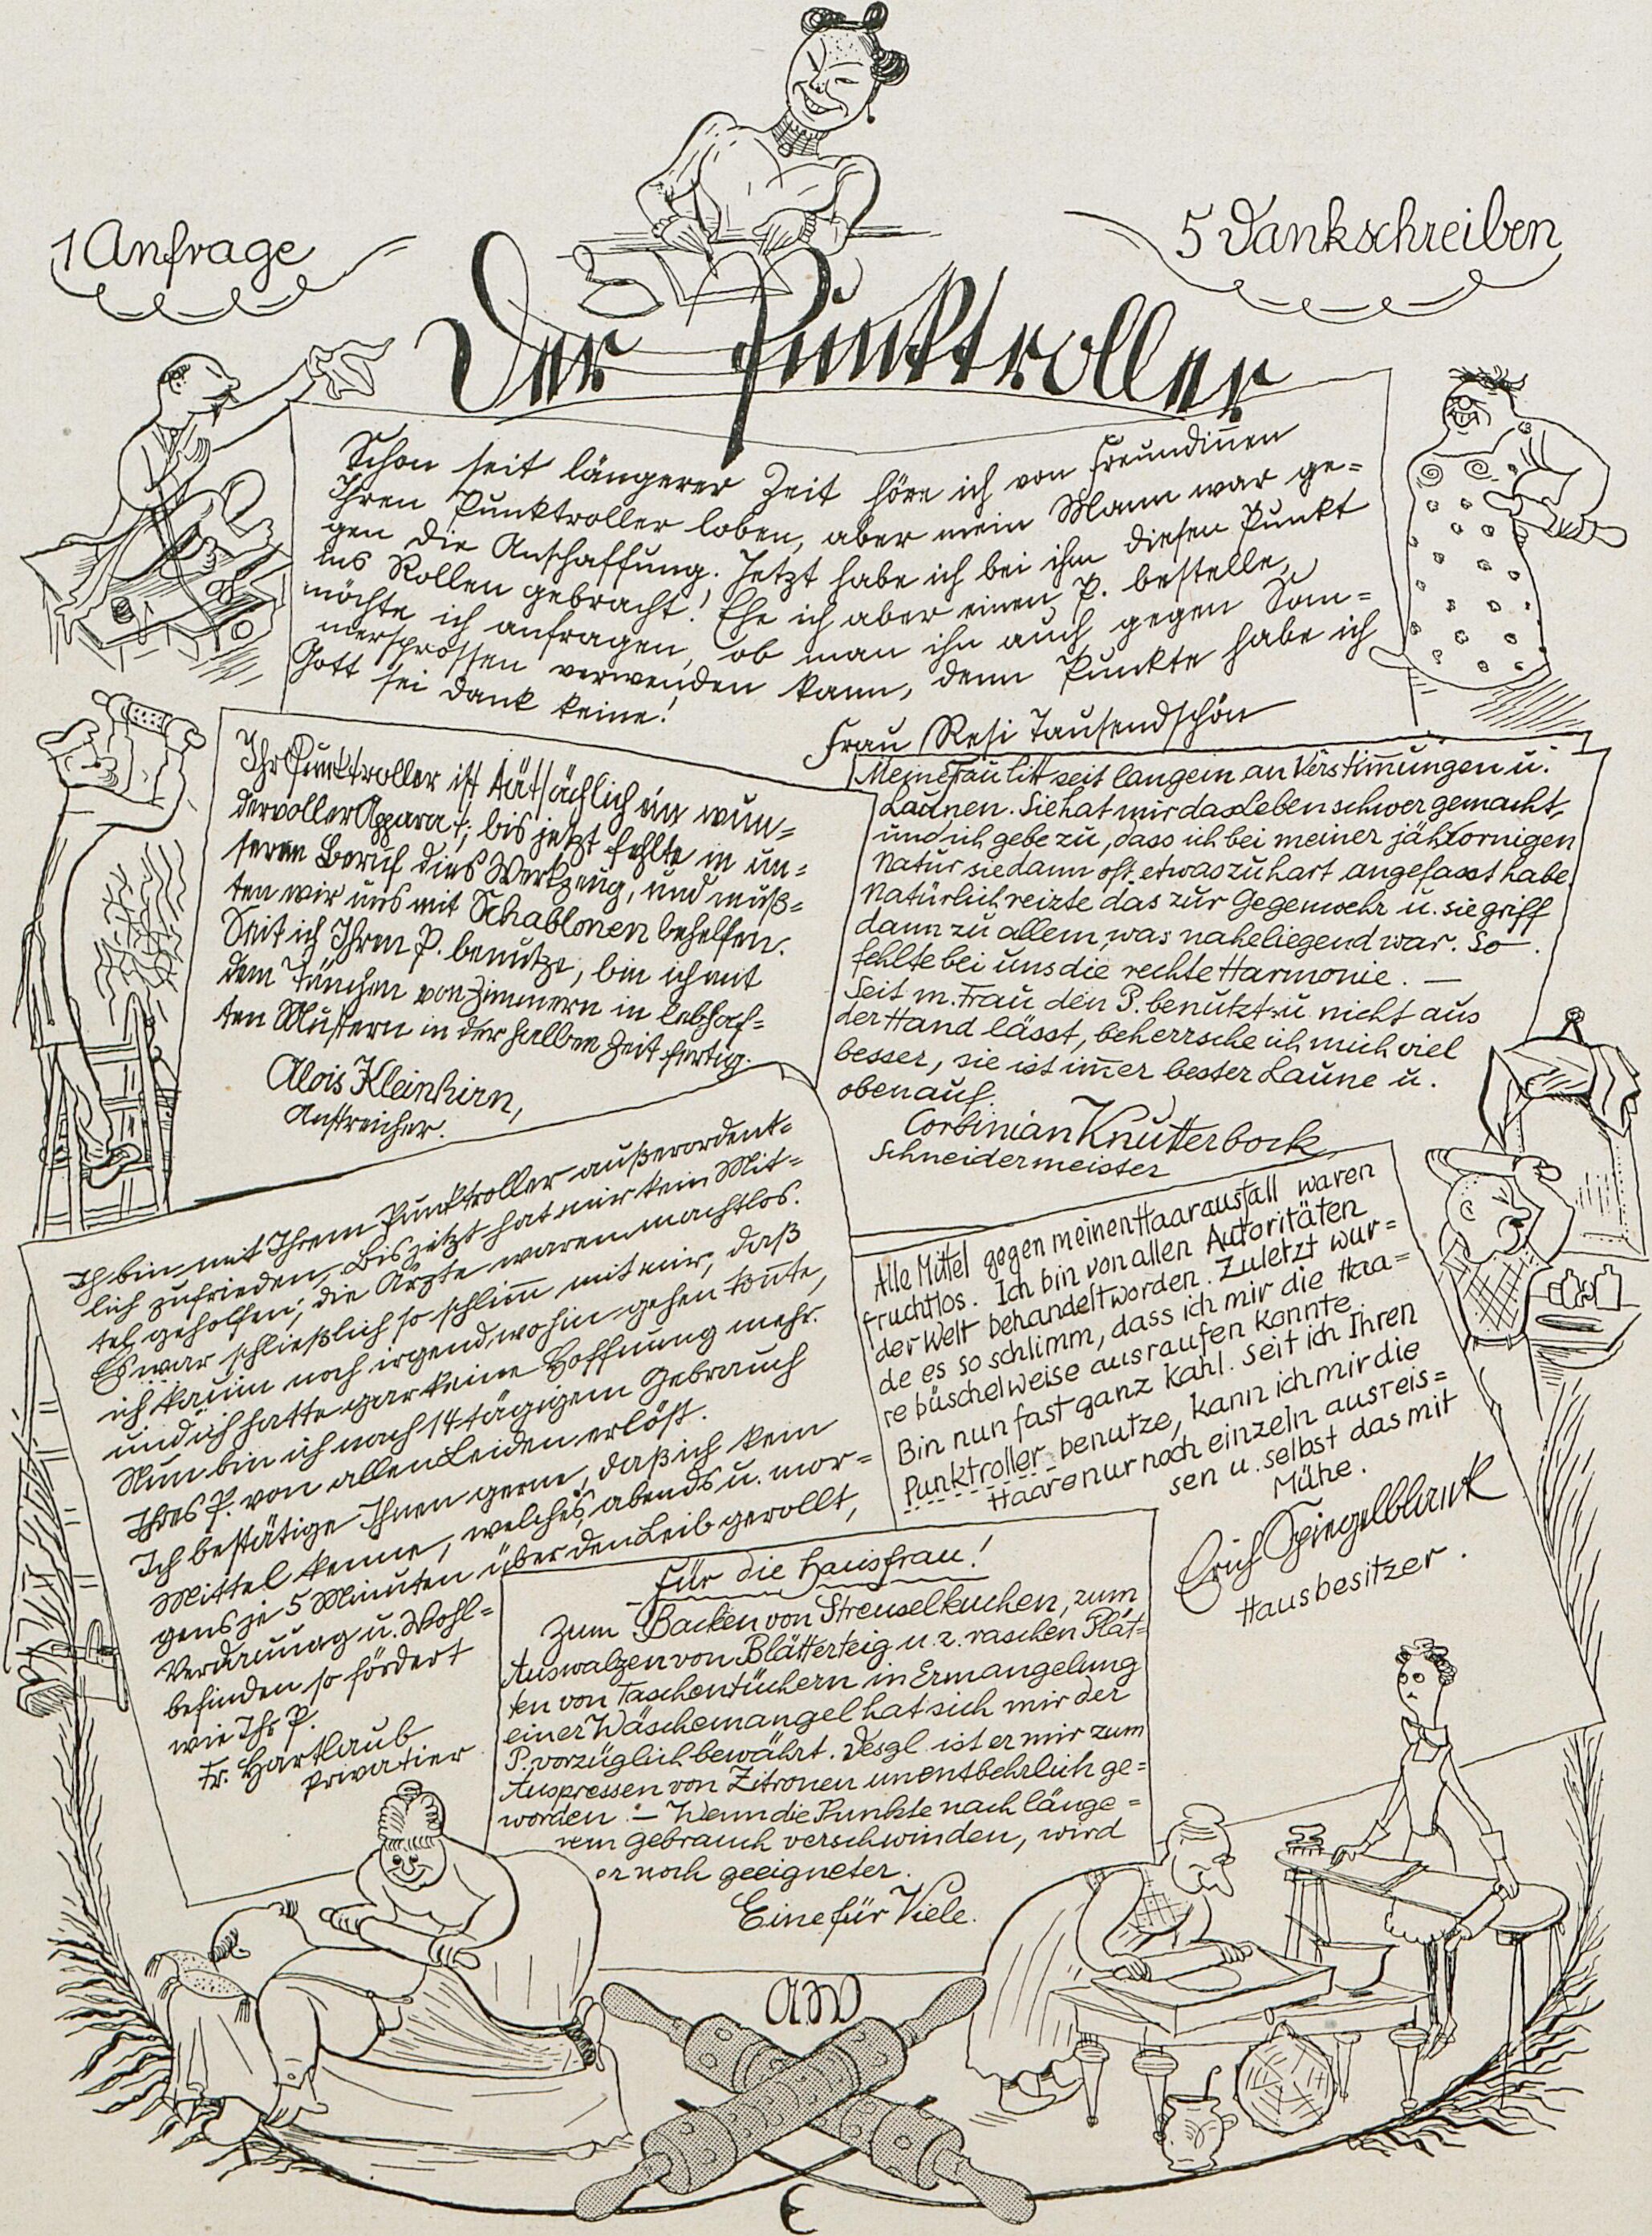 1 Anfrage
5 Dankschreiben
Der Punktroller
Schon seit längerer Zeit höre ich von Freundinen
Ihren Punktroller loben, aber mein Mann war ge=
gen die Anschaffung. Jetzt habe ich bei ihm diesen Punkt
ins Rollen gebracht! Ehe ich aber einen P. bestelle,
möchte ich anfragen, ob man ihn auch gegen Som=
mersprossen verwenden kann, denn Punkte habe ich
Gott sei Dank keine!
Frau Resi Tausendschön
Ihr Punktroller ist tätsächlich ein wun=
dervoller Apparat; bis jetzt fehlte in un=
serem Beruf dies Werkzeug, und muß=
ten wir uns mit Schablonen behelfen.
Seit ich Ihren P. benutze, bin ich mit
dem Tünchen von Zimmern in lebhaf=
ten Mustern in der halben Zeit fertig.
Alois Kleinhirn,
Anstreicher.
Meine Frau litt seit langem an Verstimungen u.
Launen. Sie hat mir das Leben schwer gemacht,
und ich gebe zu, dass ich bei meiner jähzornigen
Natur sie dann oft etwas zu hart angefasst habe.
Natürlich reizte das zur Gegenwehr u. sie griff
dann zu allem, was naheliegend war. So
fehlte bei uns die rechte Harmonie. —
Seit m. Frau den P. benutzt u. nicht aus
der Hand lässt, beherrsche ich mich viel
besser, sie ist imer bester Laune u.
obenauf.
Corbinian Knutterbock,
Schneidermeister
Ich bin mit Ihrem Punktroller außerordent=
lich zufrieden. Bis jetzt hat mir kein Mit=
tel geholfen; die Ärzte waren machtlos.
Es war schließlich so schlim mit mir, daß
ich kaum noch irgendwohin gehen konte,
und ich hatte gar keine Hoffnung mehr.
Nun bin ich nach 14 tägigem Gebrauch
Ihres P. von allen Leiden erlöst.
Ich bestätige Ihnen gerne, daß ich kein
Mittel kenne, welches abends u. mor=
gens je 5 Minuten über den Leib gerollt,
Verdauung u. Wohl=
befinden so fördert
wie Ihr P.
Fr. Hartlaub
Privatier
Alle Mittel gegen meinen Haarausfall waren
fruchtlos. Ich bin von allen Autoritäten
der Welt behandelt worden. Zuletzt wur=
de es so schlimm, dass ich mir die Haa=
re büschelweise ausraufen konnte.
Bin nun fast ganz kahl. Seit ich Ihren
Punktroller benutze, kann ich mir die
Haare nur noch einzeln ausreis=
sen u. selbst das mit
Mühe.
Erich Spiegelblank
Hausbesitzer.
Für die Hausfrau!
Zum Backen von Streuselkuchen, zum
Auswalzen von Blätterteig u. z. raschen Plät=
ten von Taschentüchern in Ermangelung
einer Wäschemangel hat sich mir der
P. vorzüglich bewährt. Desgl. ist er mir zum
Auspressen von Zitronen unentbehrlich ge=
worden. — Wenn die Punkte nach länge=
rem Gebrauch verschwinden, wird
er noch geeigneter.
Eine für Viele.
AW